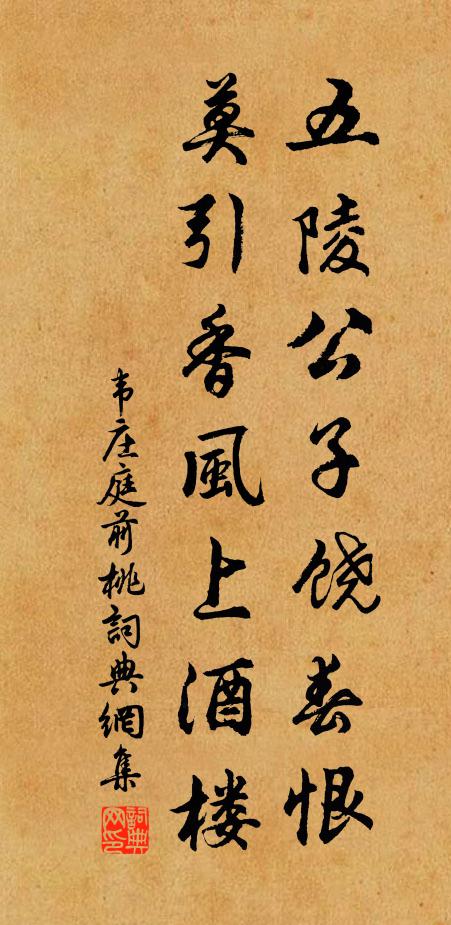 五陵公子饶春恨
莫引香風上酒楼
韦庄庭前桃詞典網集
詞典网印